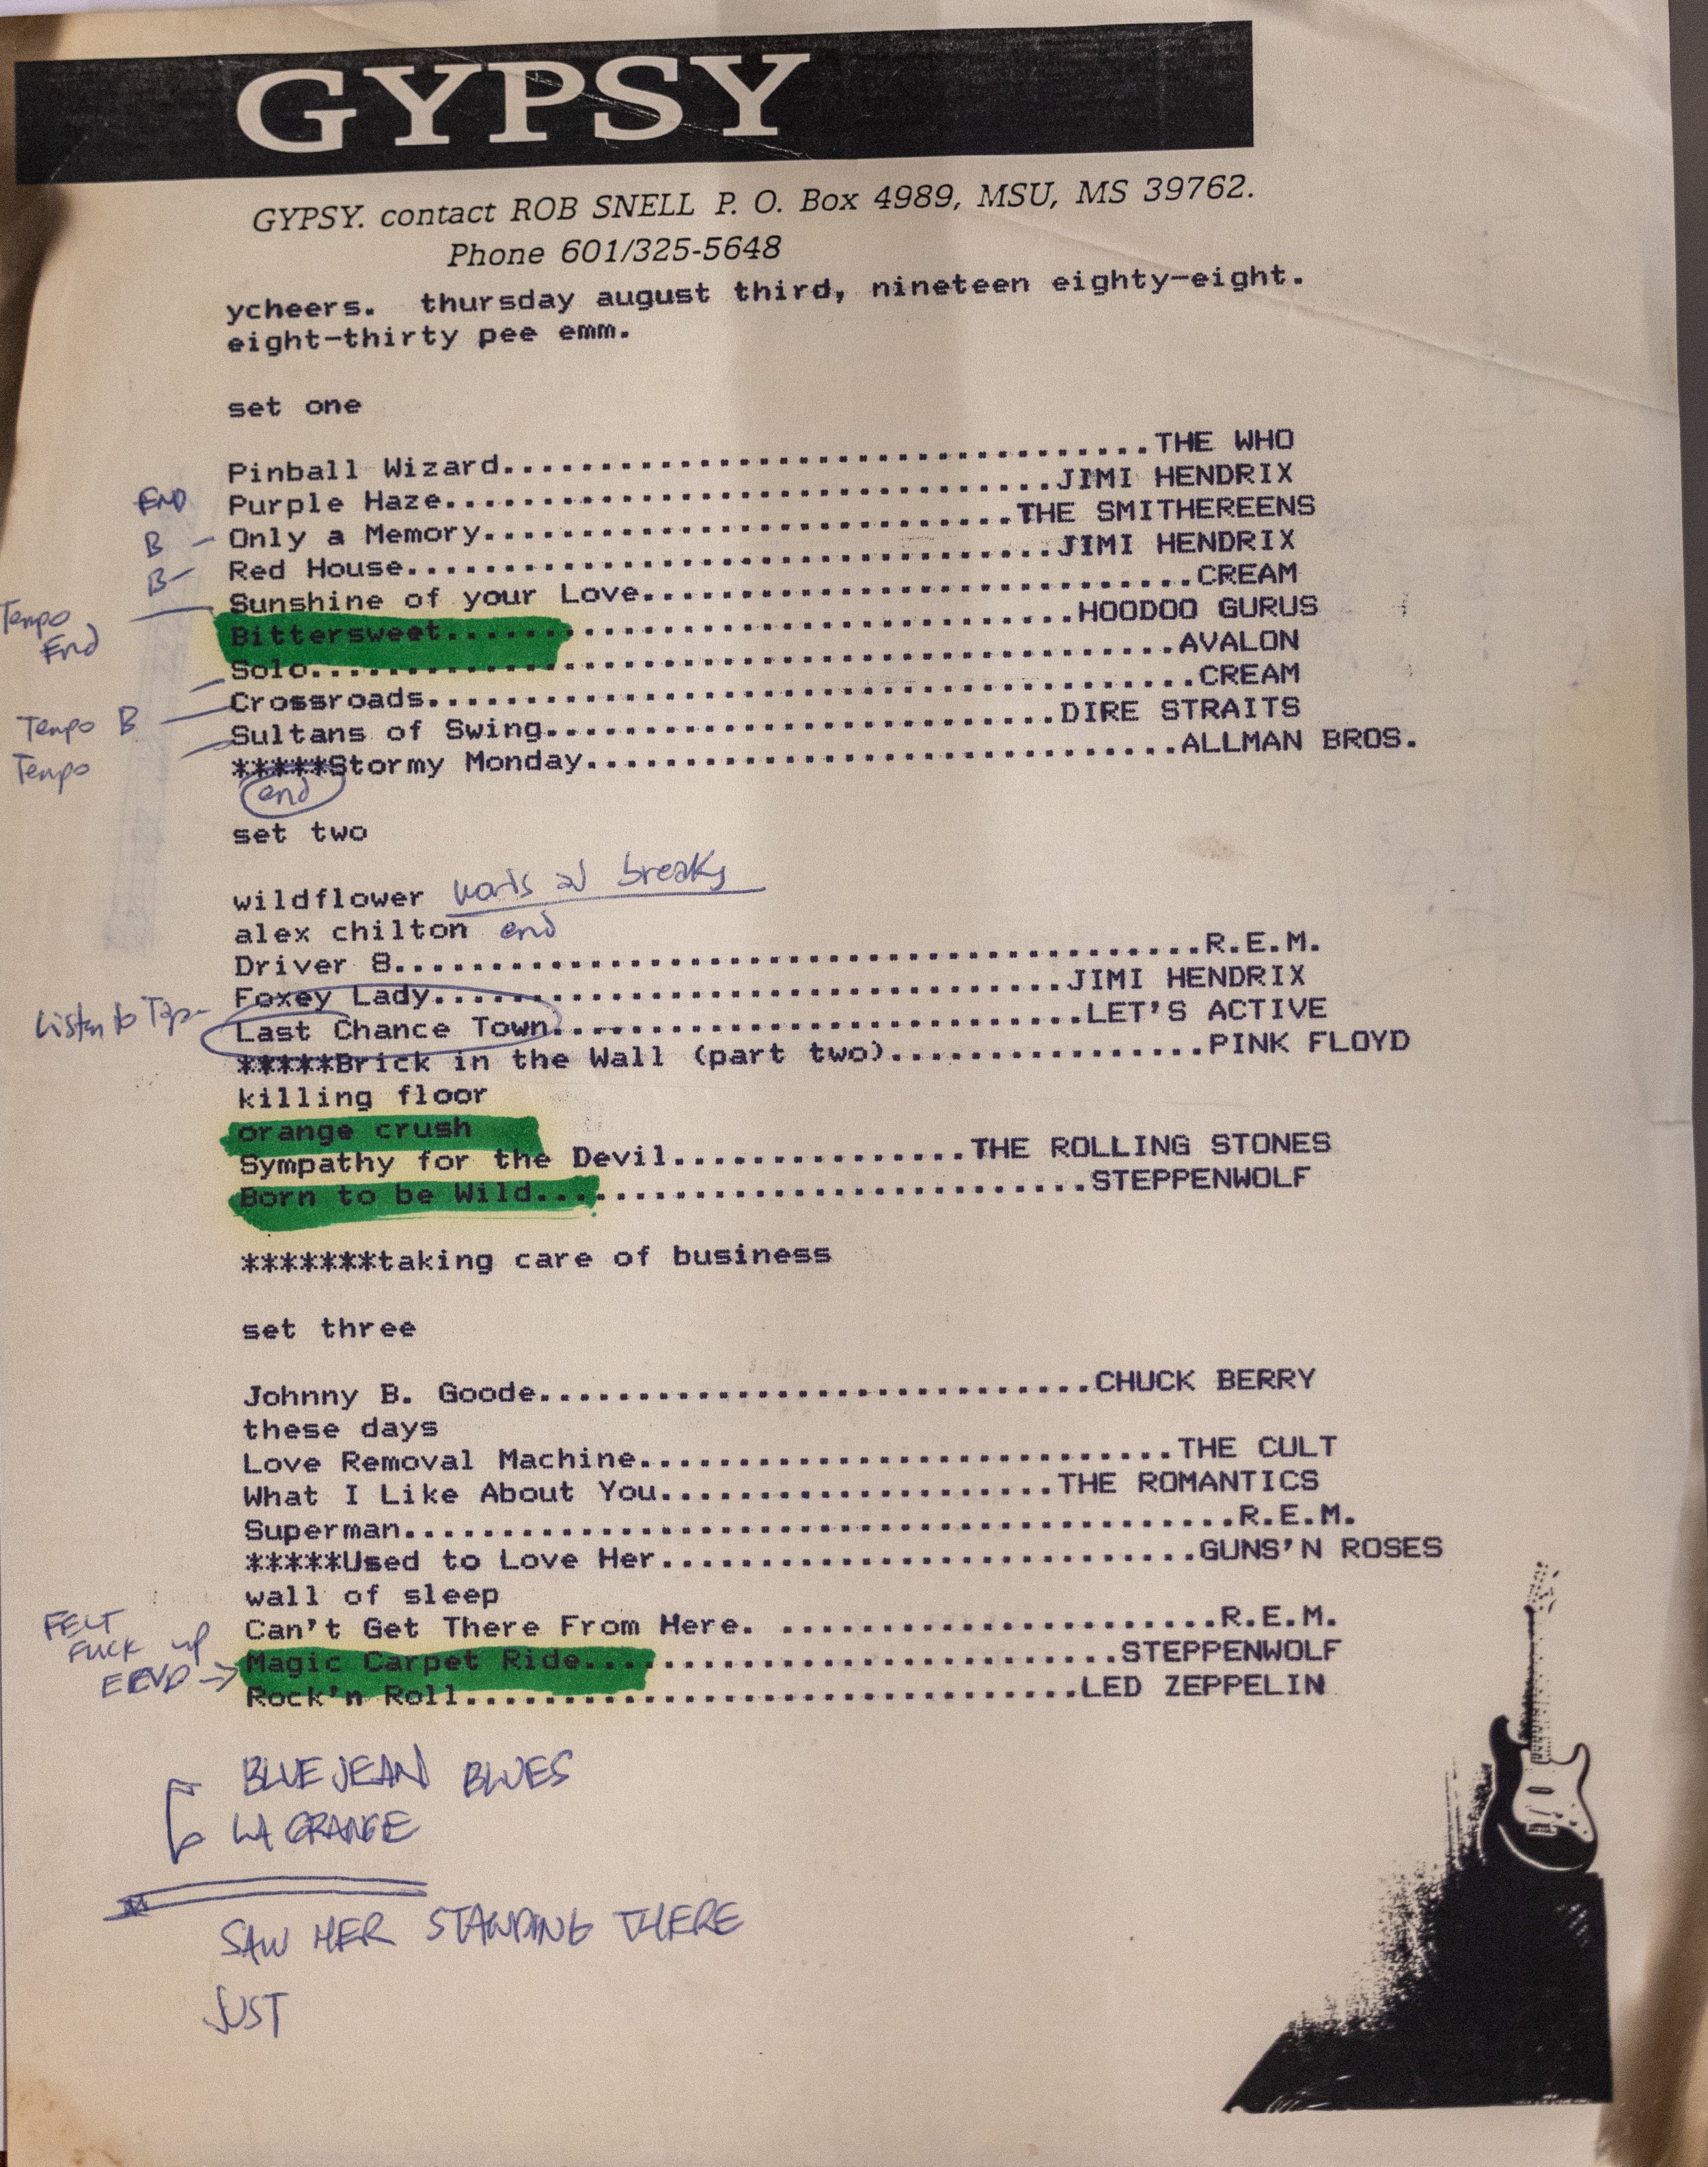 GYPSY
GYPSY. contact ROB SNELL P. O. Box 4989, MSU, MS 39762.
Phone 601/325-5648
ycheers.  thursday august third, nineteen eighty-eight.
eight-thirty pee emm.
set one
Pinball Wizard.................................THE WHO
END Purple Haze...............................JIMI HENDRIX
B - Only a Memory...........................THE SMITHEREENS
B- Red House.................................JIMI HENDRIX
Sunshine of your Love............................CREAM
Tempo
End
Bittersweet................................HOODOO GURUS
Solo............................................AVALON
Crossroads.......................................CREAM
Tempo B - Sultans of Swing..........................DIRE STRAITS
Tempo *****Stormy Monday..............................ALLMAN BROS.
end
set two
wildflower
breaks
alex chilton end
Driver 8.........................................R.E.M.
Foxey Lady................................JIMI HENDRIX
Listen to Last Chance Town...........................LET'S ACTIVE
*****Brick in the Wall (part two)................PINK FLOYD
killing floor
orange crush
Sympathy for the Devil...............THE ROLLING STONES
Born to be Wild............................STEPPENWOLF
*******taking care of business
set three
Johnny B. Goode............................CHUCK BERRY
these days
Love Removal Machine...........................THE CULT
What I Like About You....................THE ROMANTICS
Superman..........................................R.E.M.
*****Used to Love Her...........................GUNS'N ROSES
wall of sleep
Can't Get There From Here. ......................R.E.M.
FELT
FUCK up
Magic Carpet Ride...........................STEPPENWOLF
Rock'n Roll...............................LED ZEPPELIN
BLUE JEAN BLUES
LA GRANGE
SAW HER STANDING THERE
JUST